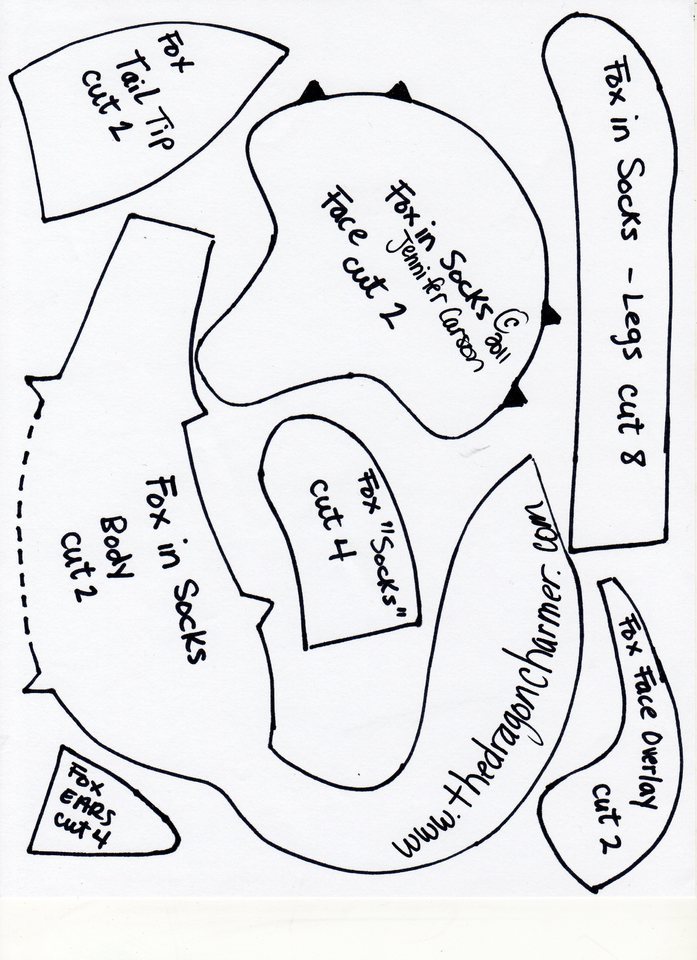 Fox
Tail Tip
cut 2
Fox in Socks ©
2011
Jennifer Carson
Face cut 2
Fox in Socks - Legs cut 8
Fox in Socks
Body
cut 2
Fox "Socks"
cut 4
www.thedragoncharmer.com
Fox Face Overlay
cut 2
Fox
EARS
cut 4